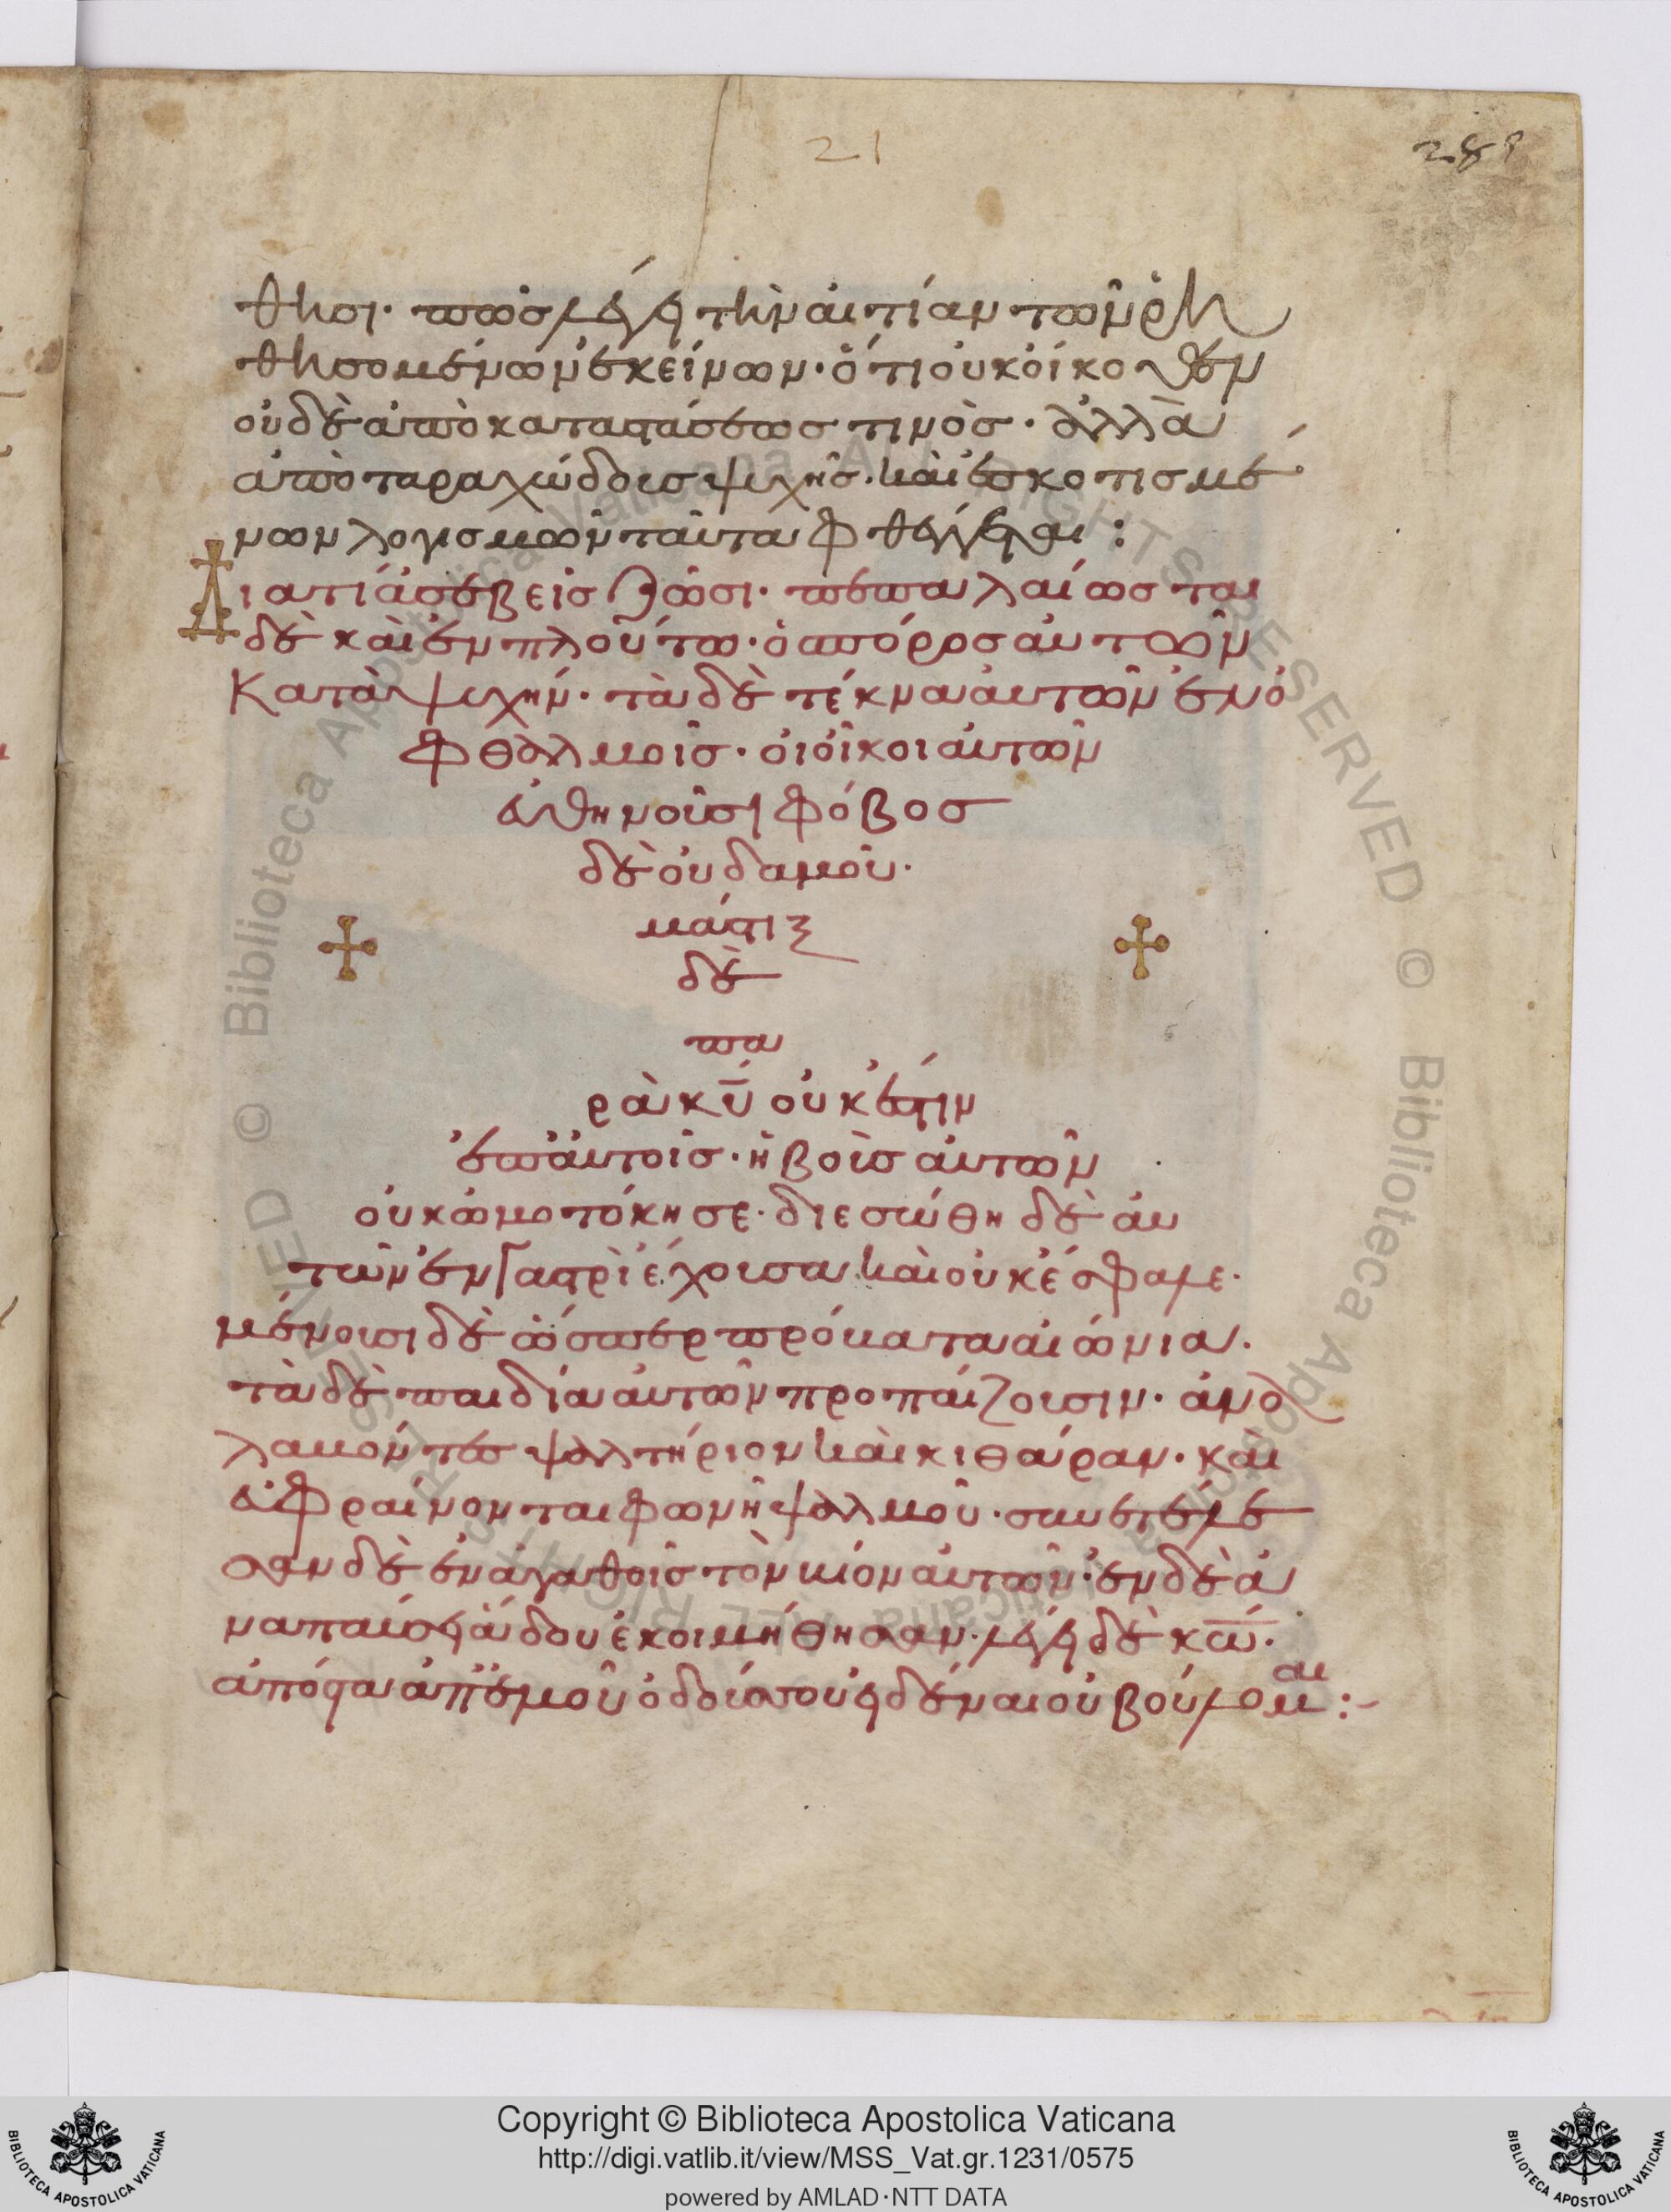 21
289
θησι· προσλέγει τὴν αἰτίαν τῶν ῥη
θησομένων ἐκείνων· ὅτι οὐκ οἴκοθεν
οὐδὲ ἀπὸ καταστάσεως τινὸς· ἀλλὰ
ἀπὸ ταραχώδους ψυχῆς· καὶ ἐσκοτισμέ
νων λογισμῶν ταῦτα φθέγγεται:
Διατί ἀσεβεῖς ζῶσι· πεπαλαίωσται
δὲ καὶ ἐν πλούτω· ὁ σπόρος αὐτῶν
Κατὰ ψυχήν· τὰ δὲ τέκνα αὐτῶν ἐν ὀ
φθαλμοῖς· οἱ οἶκοι αὐτῶν
εὐθηνοῦσι φόβος
δὲ οὐδαμοῦ·
μάστιξ
δὲ
πα
ρὰ κ̅υ̅ οὐκ ἔστιν
ἐπ' αὐτοῖς· ἡ βοῦς αὐτῶν
οὐκ ὠμοτόκησε· διεσώθη δὲ αὐ
τῶν ἐν γαστρὶ ἔχουσα καὶ οὐκ ἔσφαλε·
μένουσι δὲ ὥσπερ πρόβατα αἰώνια·
τὰ δὲ παιδία αὐτῶν προπαίζουσιν· ἀναλ
λαβόντες ψαλτήριον καὶ κιθάραν· καὶ
εὐφραίνονται φωνῆ ψαλμοῦ· συνετέλε
σαν δὲ ἐν ἀγαθοῖς τὸν βίον αὐτῶν· ἐν δὲ ἀ
ναπαύσει ἅδου ἐκοιμήθησαν· λέγει δὲ κ̅ω̅·
ἀπόστα ἀπ' ἐμοῦ ὁδούς σου εἰδέναι οὐ βούλομαι:-
Copyright © Biblioteca Apostolica Vaticana
http://digi.vatlib.it/view/MSS_Vat.gr.1231/0575
powered by AMLAD·NTT DATA